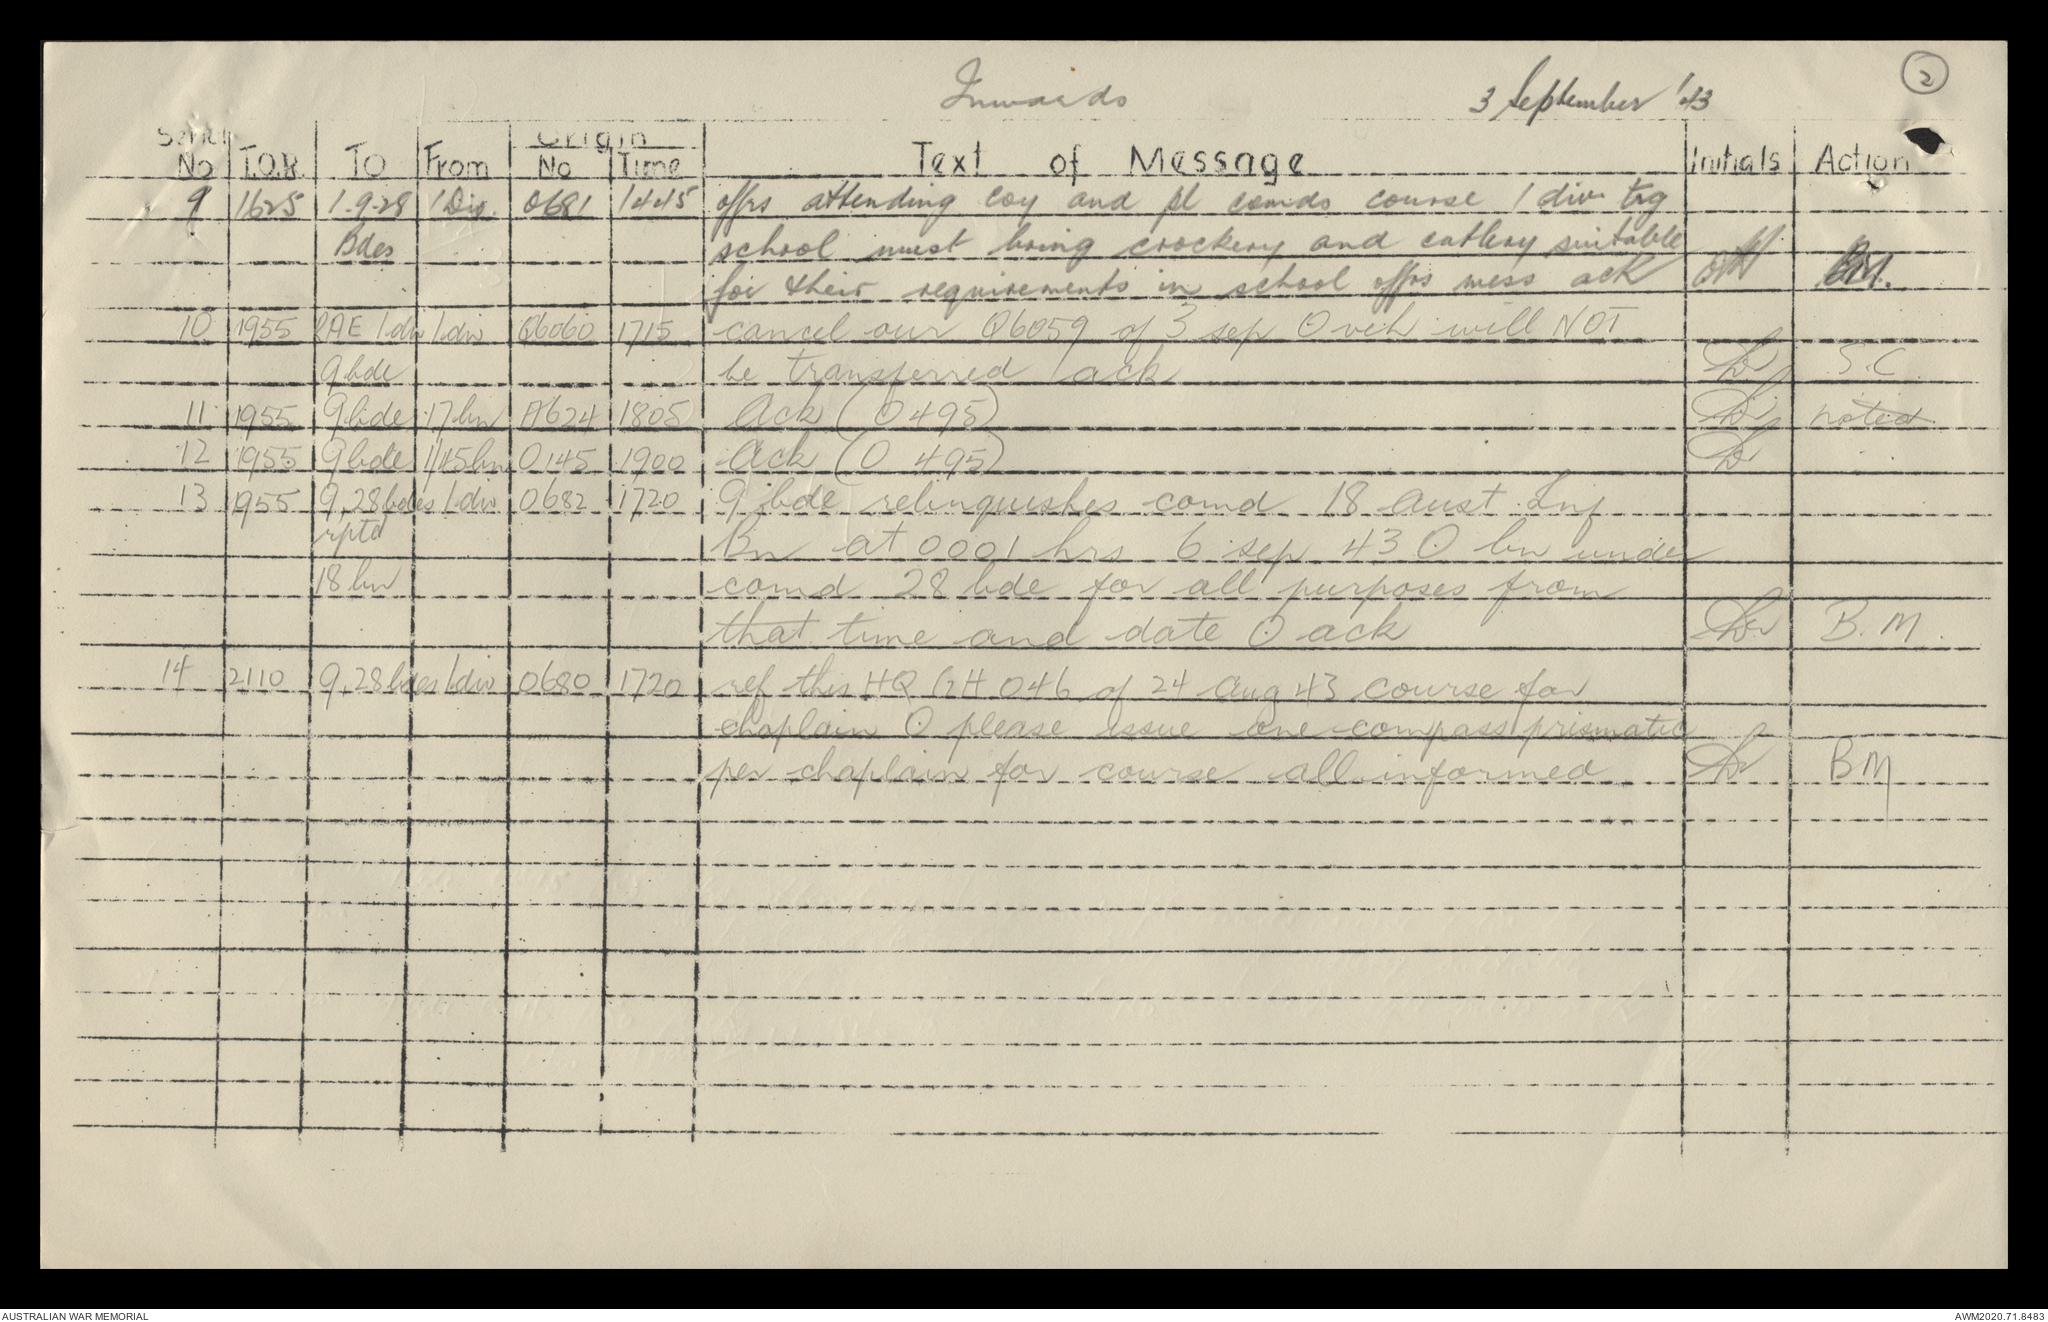 2
Inwards 3 September '43
Serial Origin
No T.O.R. TO From No Time Text of Message Initials Action
9 1625 1-9-28 1 Div. 0681 1445 offrs attending coy and pl comds course 1 div trg
Bdes school must bring crockery and cutlery suitable
for their requirements in school offrs mess ack BM.
10 1955 RAE 1 div 1 div Q6060 1715 cancel our Q6059 of 3 sep O veh will NOT
9 bde be transferred ack S.C
11 1955 9 bde 17 bn A624 1805 Ack (O 495) noted
12 1955 9 bde 1/45 bn O145 1900 Ack (O 495)
13 1955 9, 28 bdes 1 div 0682 1720 9 bde relinquishes comd 18 Aust Inf
rptd Bn at 0001 hrs 6 sep 43 O bn under
18 bn comd 28 bde for all purposes from
that time and date O ack B.M.
14 2110 9, 28 bdes 1 div 0680 1720 ref this HQ GH 046 of 24 Aug 43 course for
chaplain O please issue one compass prismatic
per chaplain for course all informed BM
AUSTRALIAN WAR MEMORIAL AWM2020.71.8483